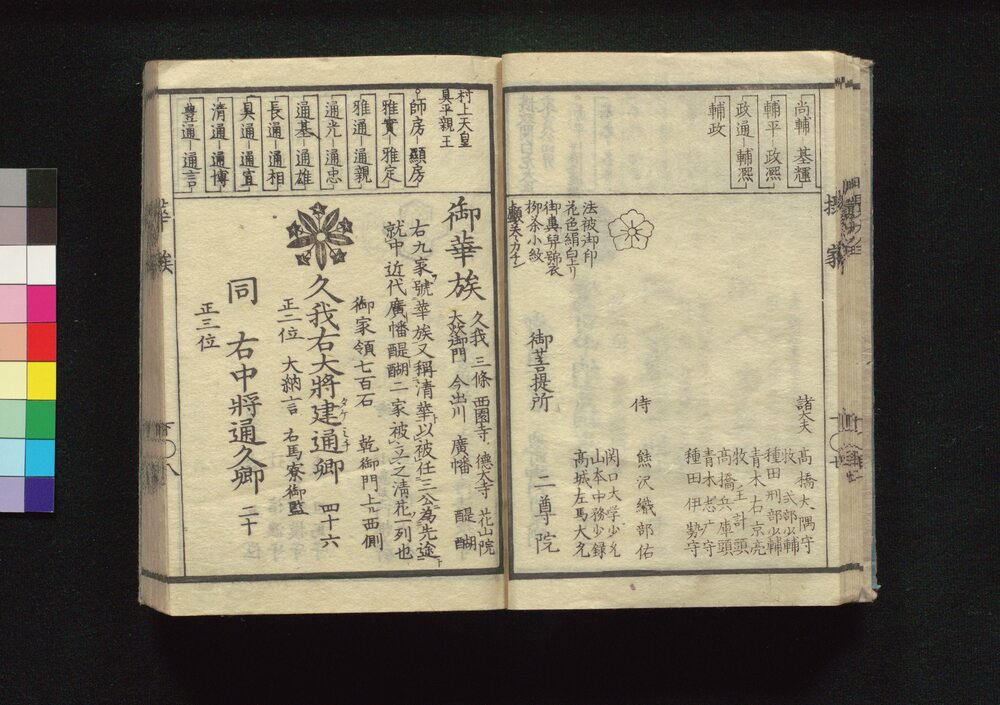 尚輔 基輝
輔平 政熈
政通 輔熈
輔政
法被御印
花色絹白上り
柳茶小紋
諸大夫
髙橋大隅守
牧 式部少輔
種田刑部少輔
青木右京亮
牧 主計頭
髙橋兵庫頭
種田伊勢守
侍
熊沢織部佑
関口大学少允
山本中務少録
高城左馬大允
御菩提所
二尊院
摂家
村上天皇
具平親王
師房 顯房
雅實 雅定
雅通 通親
通光 通忠
通基 通雄
長通 通相
具通 通宣
清通 通博
豊通 通言
御華族
久我 三條 西園寺 德大寺 花山院
大炊御門 今出川 廣幡 醍醐
右九家號華族又稱清華以被任三公為先途
就中近代廣幡醍醐二家被立之清花一列也
御家領七百石 乾御門上ル西側
久我右大將建通卿 四十六
タケミチ
正二位 大納言 右馬寮御監
同 右中將通久卿 二十
正三位
華族